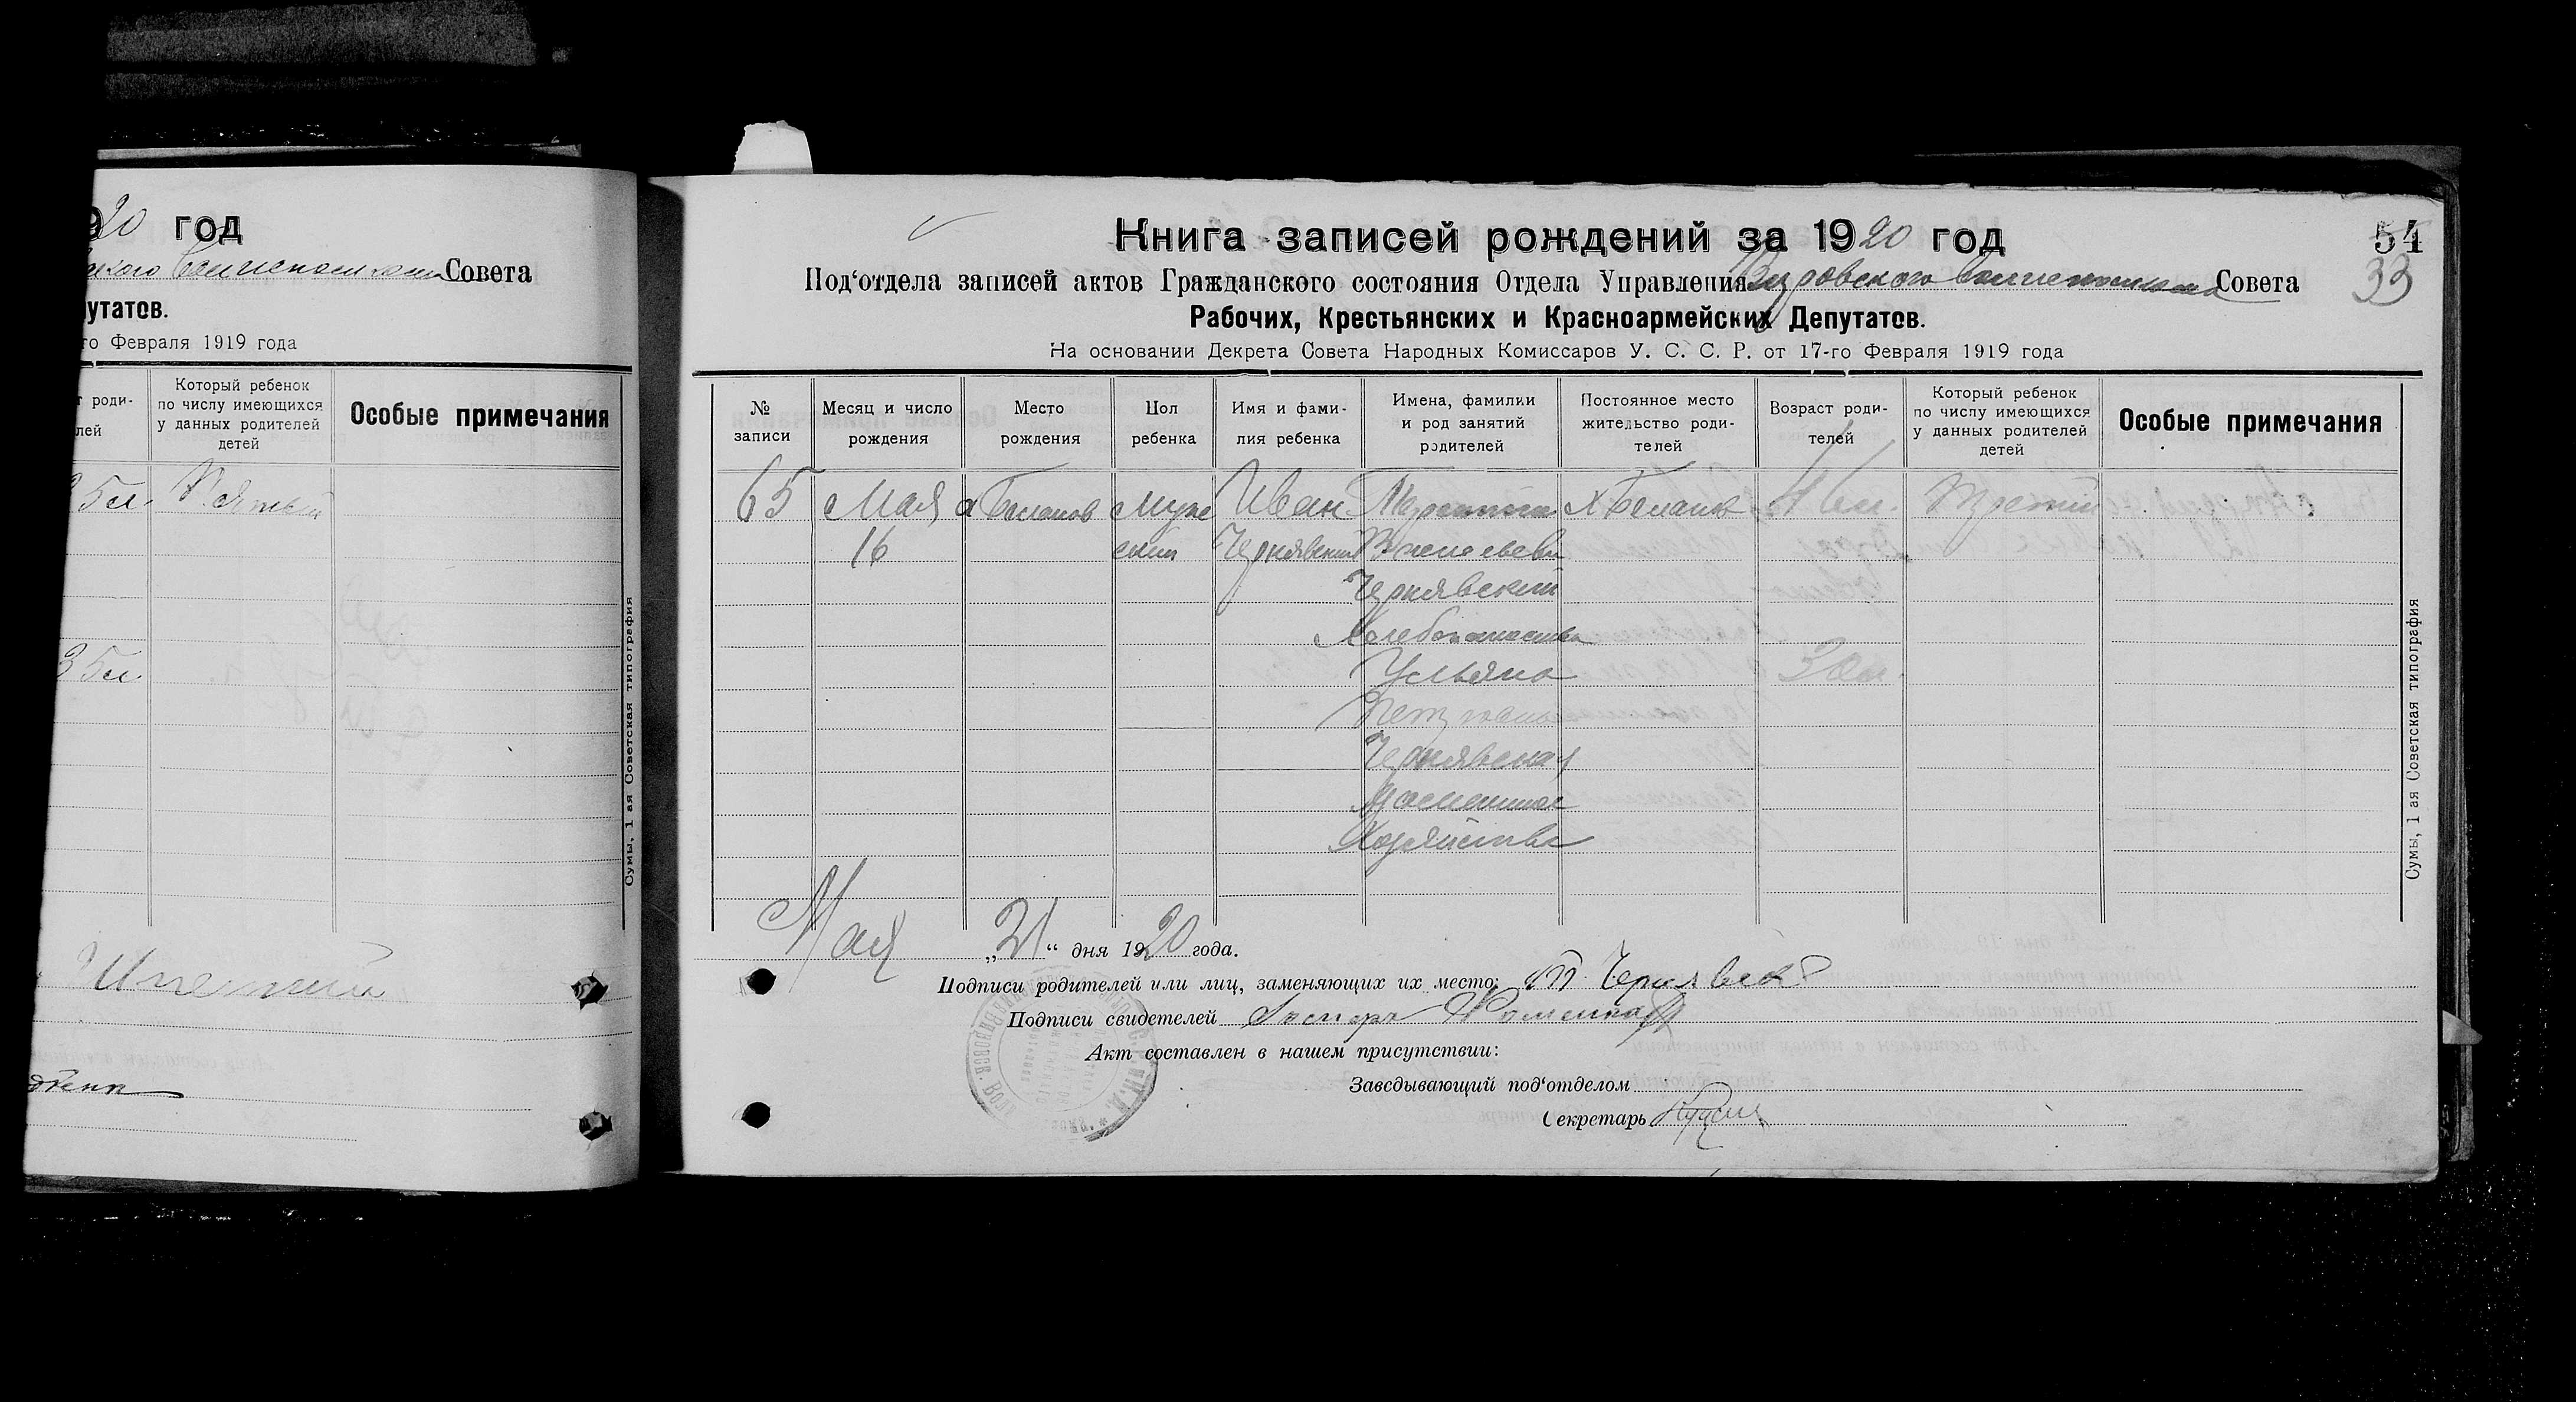 20 год
Совета
путатов.
го Февраля 1919 года
т роди-
лей
Который ребенок
по числу имеющихся
у данных родителей
детей
Особые примечания
35 л.
Пятый
35 л.
Сумы, 1 ая Советская типография
Книга записей рождений за 1920 год
54
33
Под‘отдела записей актов Гражданского состояния Отдела Управления Совета
Рабочих, Крестьянских и Красноармейских Депутатов.
На основании Декрета Совета Народных Комиссаров У. С. С. Р. от 17-го Февраля 1919 года
№
записи
Месяц и число
рождения
Место
рождения
Пол
ребенка
Имя и фами-
лия ребенка
Имена, фамилии
и род занятий
родителей
Постоянное место
жительство роди-
телей
Возраст роди-
телей
Который ребенок
по числу имеющихся
у данных родителей
детей
Особые примечания
65 Мая Муж Иван Третий
16 ский Чернявский
Чернявский
Хлебопашество
Ульяна
Петровна
Чернявская
Домашнее
Хозяйство
Сумы, 1 ая Советская типография
Мая „21“ дня 1920 года.
Подписи родителей или лиц, заменяющих их место:
Подписи свидетелей
Акт составлен в нашем присутствии:
Заведывающий под‘отделом
Секретарь